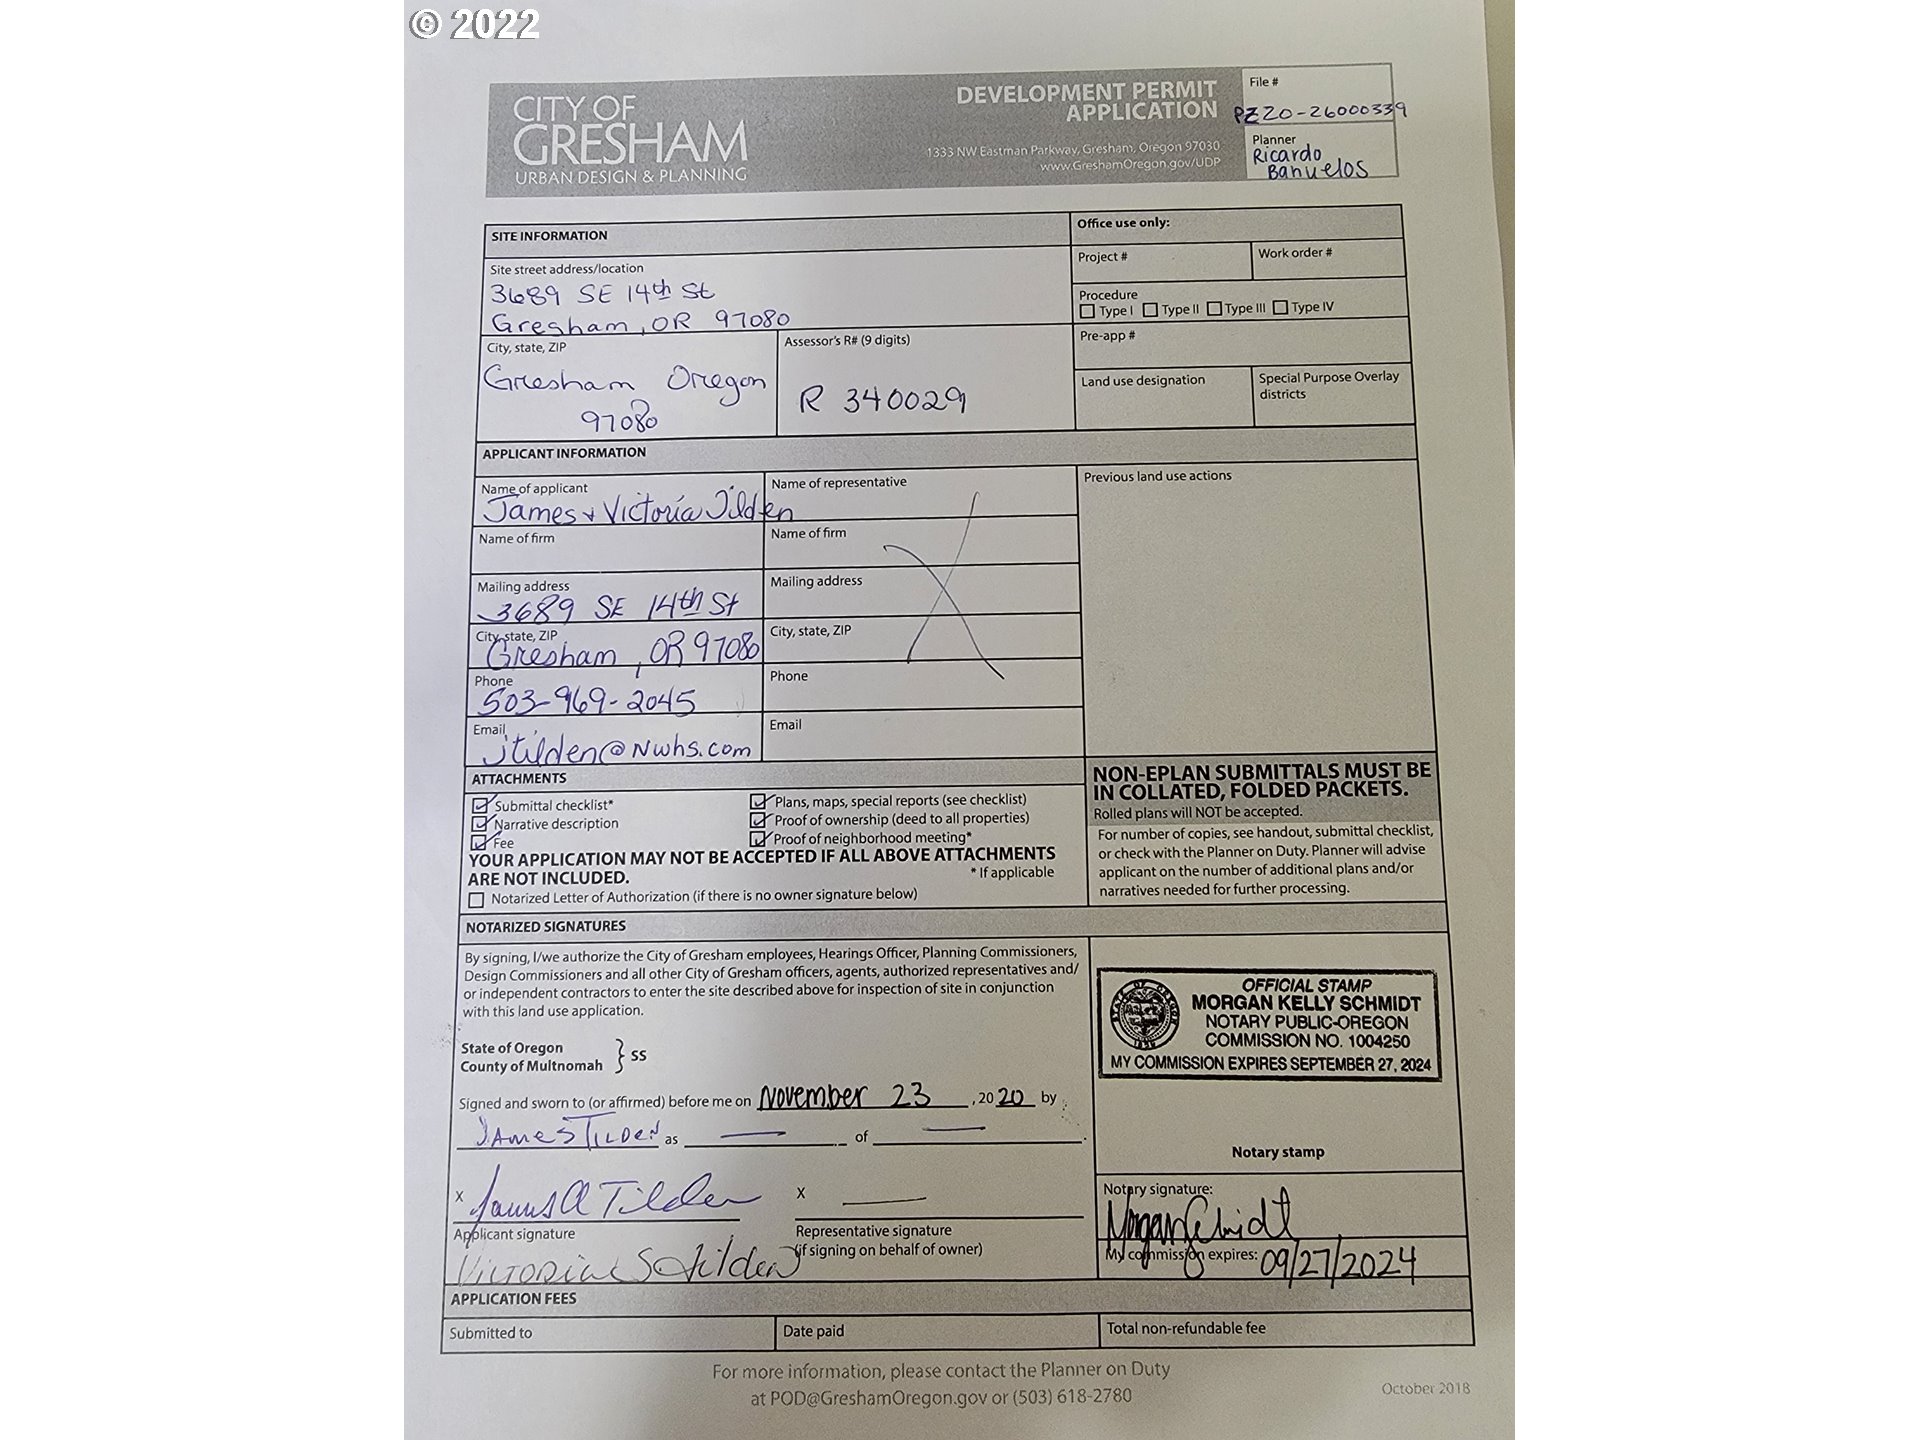 © 2022
CITY OF
GRESHAM
URBAN DESIGN & PLANNING
DEVELOPMENT PERMIT
APPLICATION
1333 NW Eastman Parkway, Gresham, Oregon 97030
www.GreshamOregon.gov/UDP
File #
PZ20-26000339
Planner
Ricardo
Banuelos
SITE INFORMATION
Office use only:
Site street address/location
3689 SE 14th St
Gresham, OR 97080
Project #
Work order #
Procedure
Type I Type II Type III Type IV
City, state, ZIP
Gresham Oregon
97080
Assessor's R# (9 digits)
R 340029
Pre-app #
Land use designation
Special Purpose Overlay
districts
APPLICANT INFORMATION
Name of applicant
James + Victoria Tilden
Name of representative
Previous land use actions
Name of firm
Name of firm
Mailing address
3689 SE 14th St
Mailing address
City, state, ZIP
Gresham, OR 97080
City, state, ZIP
Phone
503-969-2045
Phone
Email
jtilden@nwhs.com
Email
ATTACHMENTS
Submittal checklist*
Narrative description
Fee
Plans, maps, special reports (see checklist)
Proof of ownership (deed to all properties)
Proof of neighborhood meeting*
YOUR APPLICATION MAY NOT BE ACCEPTED IF ALL ABOVE ATTACHMENTS
ARE NOT INCLUDED.
* If applicable
Notarized Letter of Authorization (if there is no owner signature below)
NON-EPLAN SUBMITTALS MUST BE
IN COLLATED, FOLDED PACKETS.
Rolled plans will NOT be accepted.
For number of copies, see handout, submittal checklist,
or check with the Planner on Duty. Planner will advise
applicant on the number of additional plans and/or
narratives needed for further processing.
NOTARIZED SIGNATURES
By signing, I/we authorize the City of Gresham employees, Hearings Officer, Planning Commissioners,
Design Commissioners and all other City of Gresham officers, agents, authorized representatives and/
or independent contractors to enter the site described above for inspection of site in conjunction
with this land use application.
State of Oregon
County of Multnomah } SS
Signed and sworn to (or affirmed) before me on November 23, 2020 by
James Tilden as — of —
X James A Tilden
Applicant signature
Victoria S Tilden
X —
Representative signature
(if signing on behalf of owner)
STATE OF OREGON
1859
OFFICIAL STAMP
MORGAN KELLY SCHMIDT
NOTARY PUBLIC-OREGON
COMMISSION NO. 1004250
MY COMMISSION EXPIRES SEPTEMBER 27, 2024
Notary stamp
Notary signature:
Morgan Schmidt
My commission expires: 09/27/2024
APPLICATION FEES
Submitted to
Date paid
Total non-refundable fee
For more information, please contact the Planner on Duty
at POD@GreshamOregon.gov or (503) 618-2780
October 2018